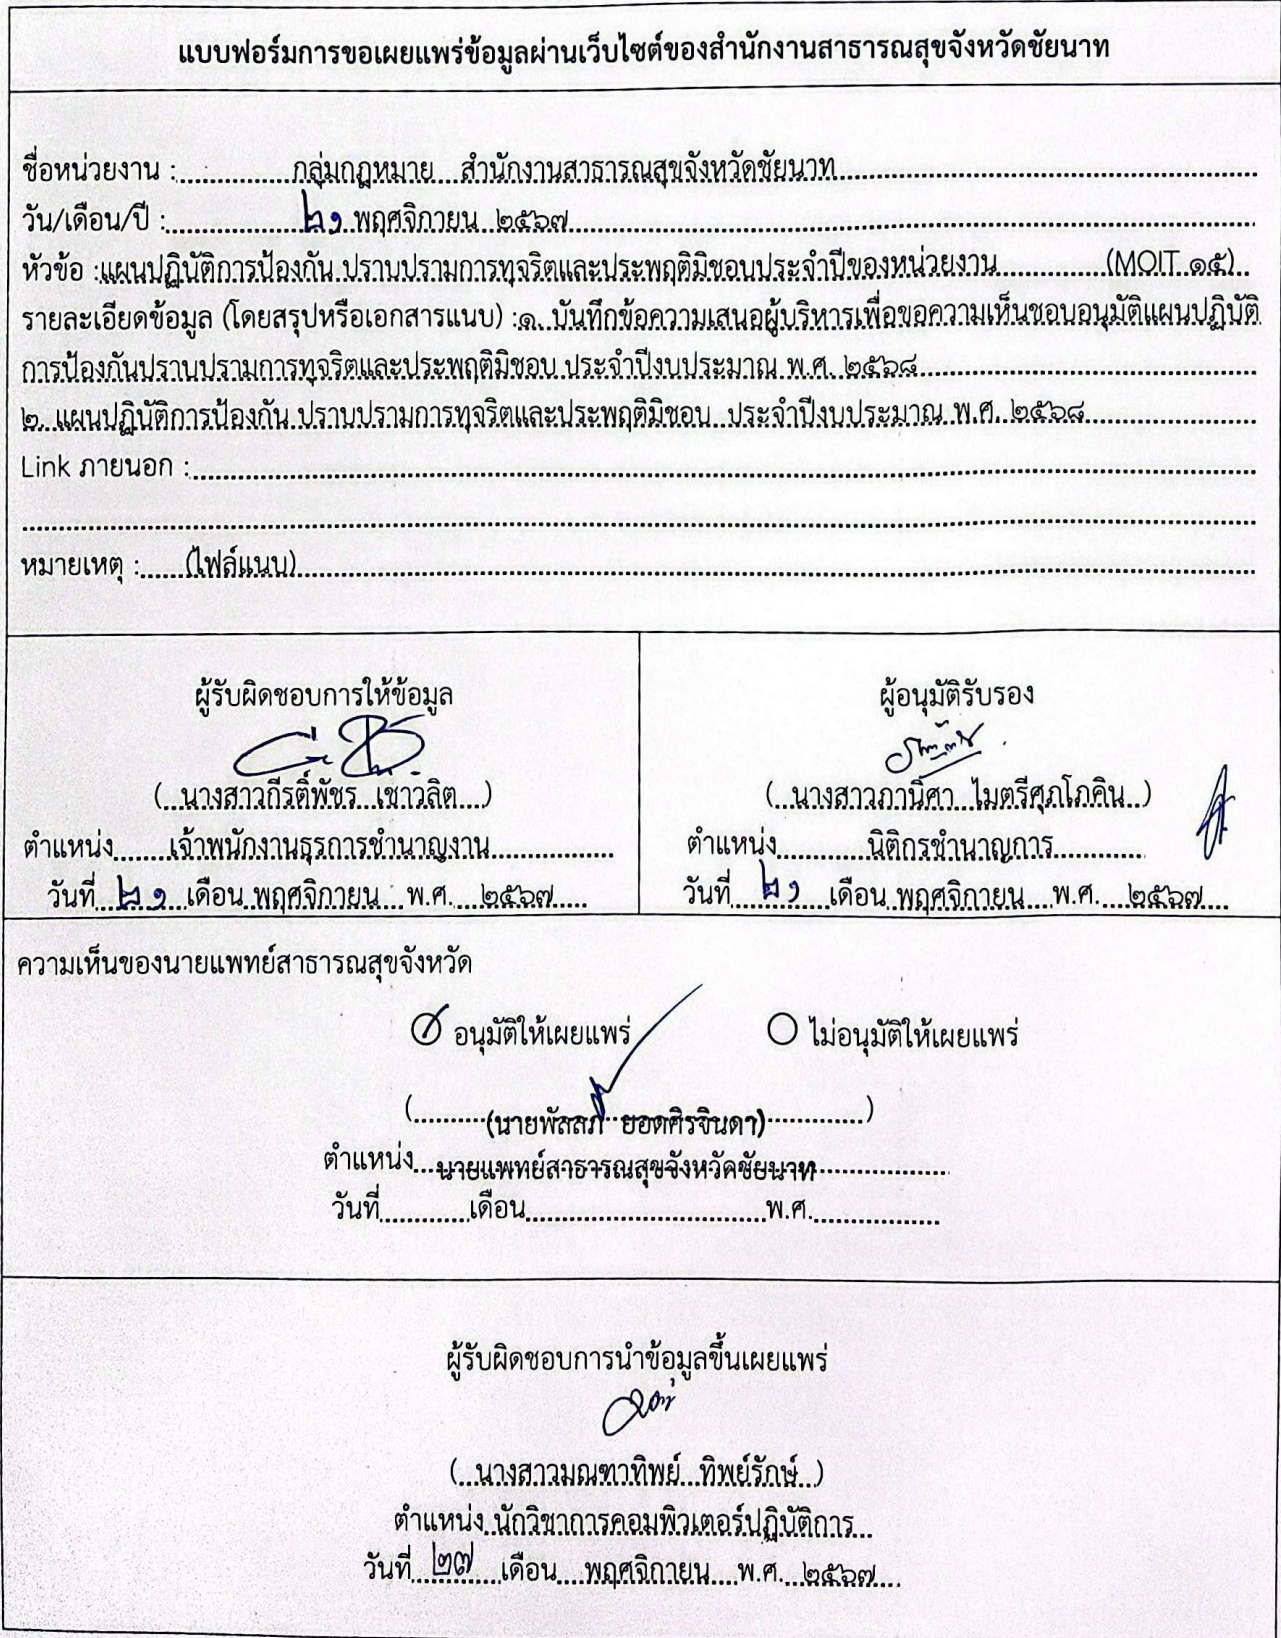 แบบฟอร์มการขอเผยแพร่ข้อมูลผ่านเว็บไซต์ของสำนักงานสาธารณสุขจังหวัดชัยนาท
ชื่อหน่วยงาน : กลุ่มกฎหมาย สำนักงานสาธารณสุขจังหวัดชัยนาท
วัน/เดือน/ปี : ๒๑ พฤศจิกายน ๒๕๖๗
หัวข้อ : แผนปฏิบัติการป้องกัน ปราบปรามการทุจริตและประพฤติมิชอบประจำปีของหน่วยงาน (MOIT ๑๕)
รายละเอียดข้อมูล (โดยสรุปหรือเอกสารแนบ) : ๑. บันทึกข้อความเสนอผู้บริหารเพื่อขอความเห็นชอบอนุมัติแผนปฏิบัติ
การป้องกันปราบปรามการทุจริตและประพฤติมิชอบ ประจำปีงบประมาณ พ.ศ. ๒๕๖๘
๒. แผนปฏิบัติการป้องกัน ปราบปรามการทุจริตและประพฤติมิชอบ ประจำปีงบประมาณ พ.ศ. ๒๕๖๘
Link ภายนอก :
หมายเหตุ : (ไฟล์แนบ)
ผู้รับผิดชอบการให้ข้อมูล
(นางสาวกีรติ์พัชร เชาวลิต)
ตำแหน่ง เจ้าพนักงานธุรการชำนาญงาน
วันที่ ๒๑ เดือน พฤศจิกายน พ.ศ. ๒๕๖๗
ผู้อนุมัติรับรอง
(นางสาวภานิศา ไมตรีศุภโภคิน)
ตำแหน่ง นิติกรชำนาญการ
วันที่ ๒๑ เดือน พฤศจิกายน พ.ศ. ๒๕๖๗
ความเห็นของนายแพทย์สาธารณสุขจังหวัด
อนุมัติให้เผยแพร่ ไม่อนุมัติให้เผยแพร่
(นายพัลลภ์ ยอดศิรจินดา)
ตำแหน่ง นายแพทย์สาธารณสุขจังหวัดชัยนาท
วันที่ เดือน พ.ศ.
ผู้รับผิดชอบการนำข้อมูลขึ้นเผยแพร่
(นางสาวมณฑาทิพย์ ทิพย์รักษ์)
ตำแหน่ง นักวิชาการคอมพิวเตอร์ปฏิบัติการ
วันที่ ๒๗ เดือน พฤศจิกายน พ.ศ. ๒๕๖๗